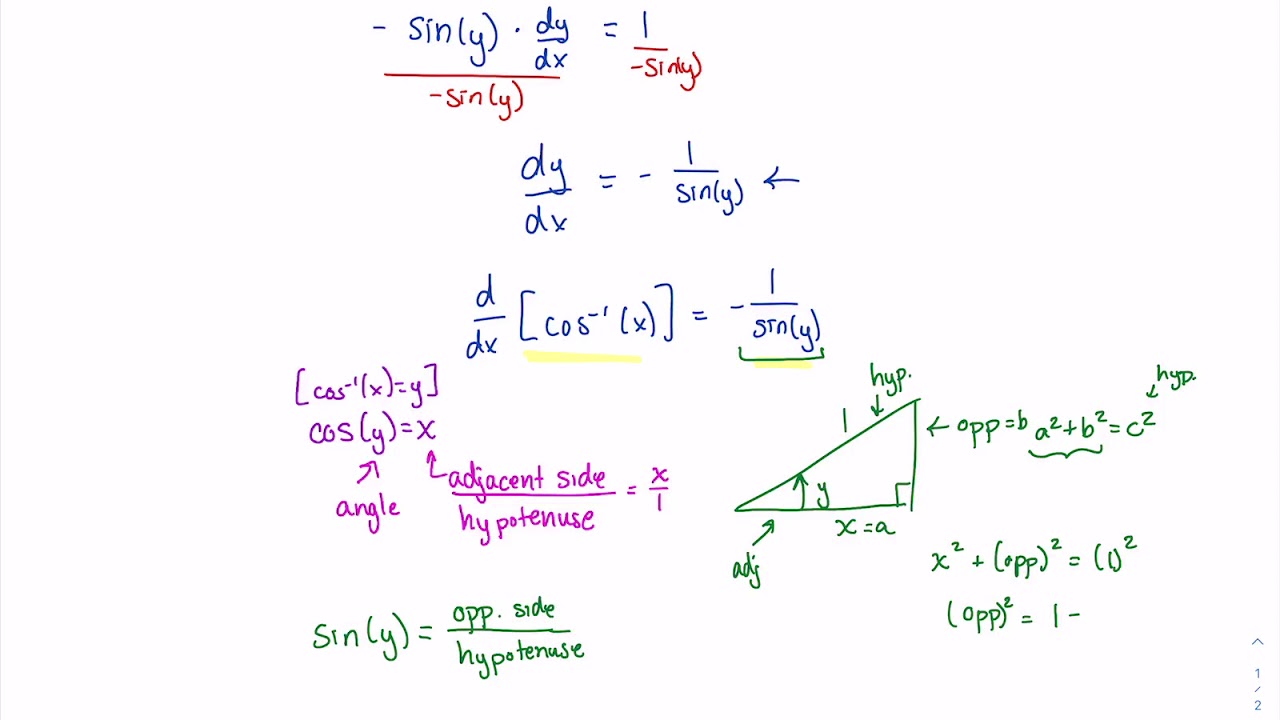 - sin(y) · dy/dx = 1/-sin(y)
-sin(y)
dy/dx = - 1/sin(y) ←
d/dx [cos⁻¹(x)] = - 1/sin(y)
[cos⁻¹(x)=y]
cos(y)=x
angle
adjacent side/hypotenuse = x/1
hyp.
1
← opp=b
a²+b²=c²
hyp.
y
x=a
adj
x² + (opp)² = (1)²
(opp)² = 1 -
sin(y) = opp. side/hypotenuse
1
/
2